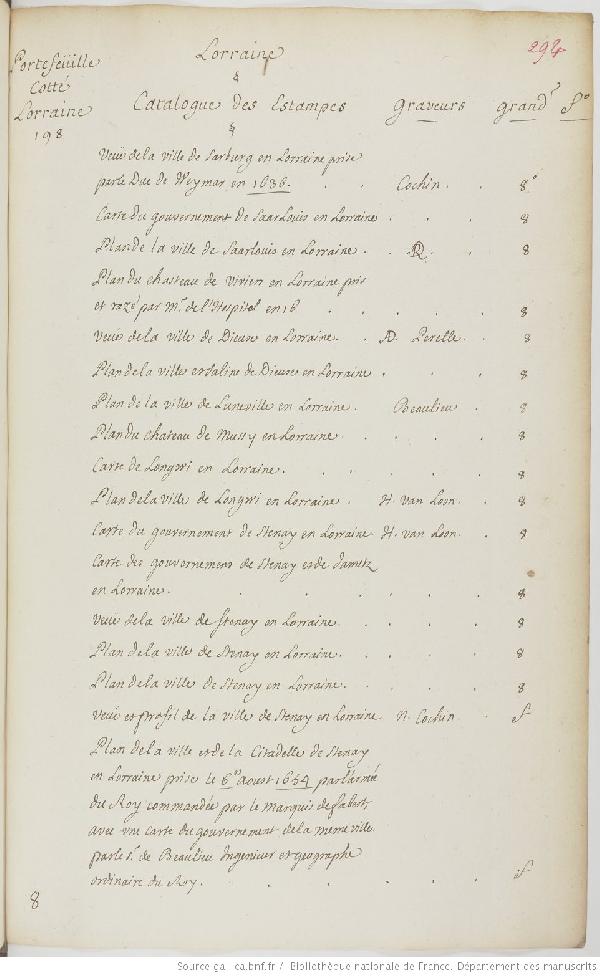 Lorraine
294
Portefeüille
Cotté
Lorraine
198
Catalogue des Estampes Graveurs grandr fo
Veüe de la ville de Sarburg en Lorraine prise
par le Duc de Weymar en 1636. Cochin. 8o
Carte du gouvernement de Saarlouis en Lorraine 8
Plan de la ville de Saarlouis en Lorraine. 8
Plan du chasteau de Vivier en Lorraine pris
et razé par mr. de l'Hospital en 16 8
Veüe de la ville de Dieuse en Lorraine. Perelle. 8
Plan de la ville et saline de Dieuse en Lorraine. 8
Plan de la ville de Luneville en Lorraine. Beaulieu. 8
Plan du chateau de Mussy en Lorraine 8
Carte de Longwi en Lorraine. 8
Plan de la ville de Longwi en Lorraine. H. van Loon. 8
Carte du gouvernement de Stenay en Lorraine H. van Loon. 8
Carte des gouvernemens de Stenay et de Jametz
en Lorraine. 8
Veüe de la ville de Stenay en Lorraine. 8
Plan de la ville de Stenay en Lorraine. 8
Plan de la ville de Stenay en Lorraine. 8
Veüe et profil de la ville de Stenay en Lorraine. N. Cochin. f
Plan de la ville et de la Citadelle de Stenay
en Lorraine prise le 6o Aoust 1654 par l'armée
du Roy commandée par le marquis de fabert,
avec une carte du gouvernement de la meme ville
par le sr. de Beaulieu Ingenieur et geographe
ordinaire du Roy. f
8
Source gallica.bnf.fr / Bibliothèque nationale de France. Département des manuscrits